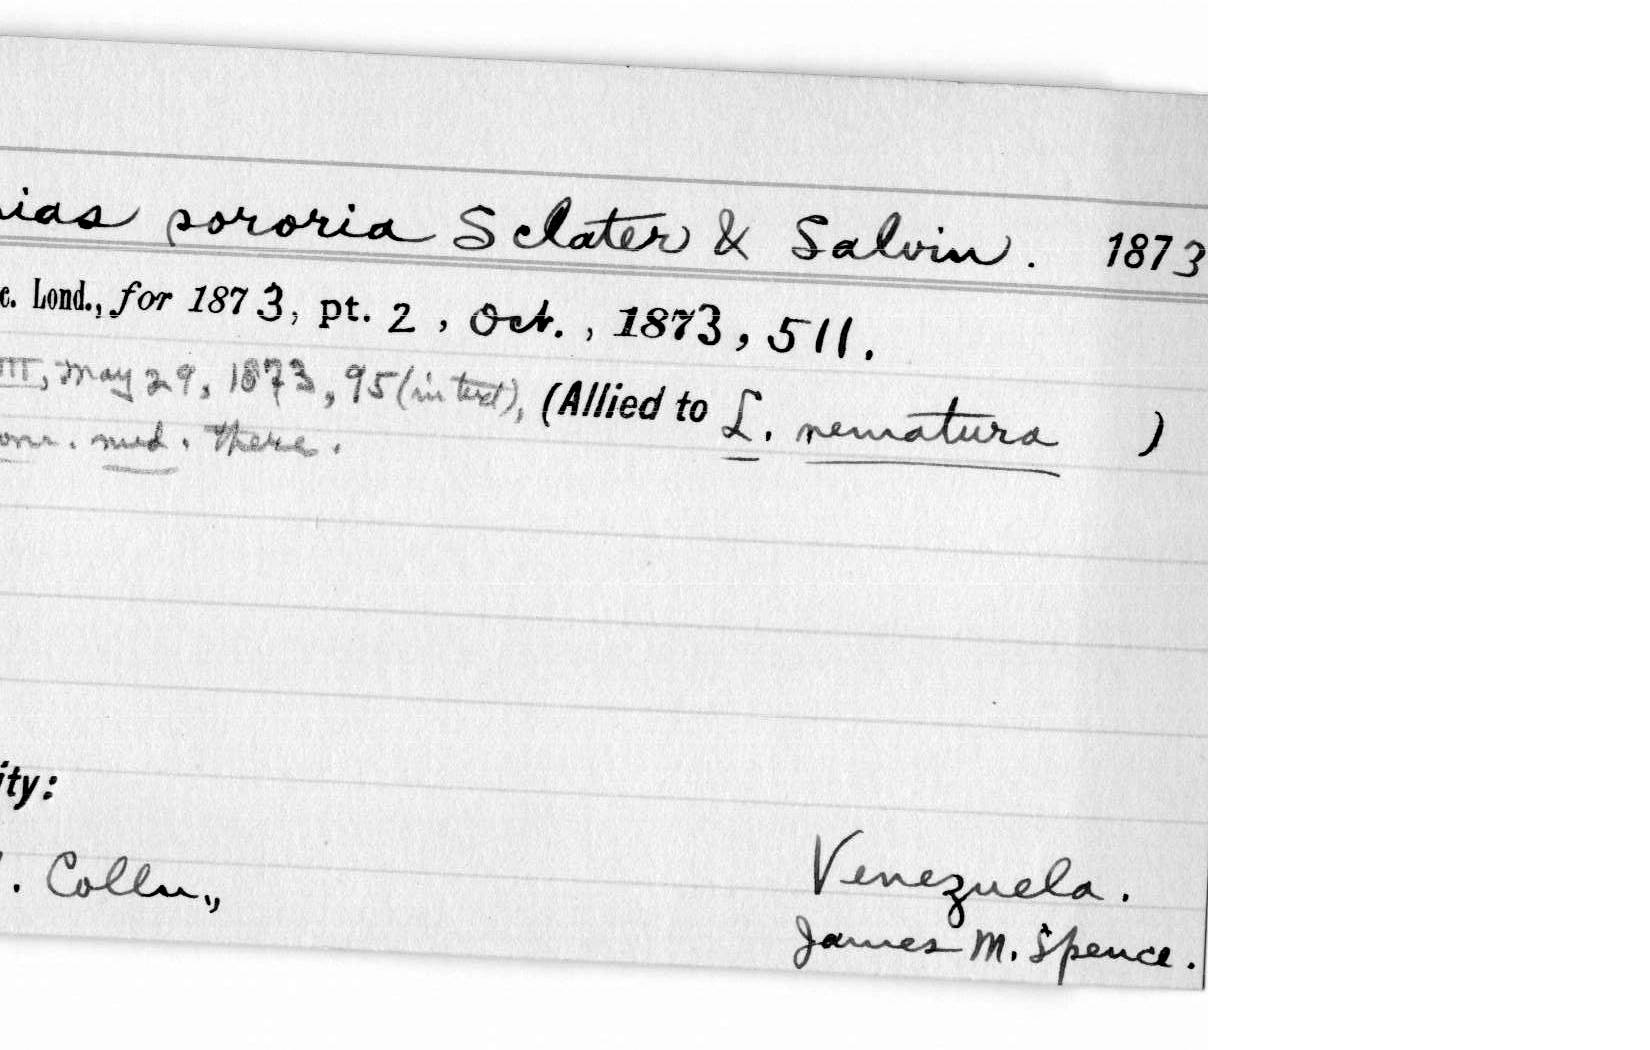 ias sororia Sclater & Salvin. 1873
c. Lond., for 1873, pt. 2, Oct., 1873, 511.
III, May 29, 1873, 95 (in text), (Allied to L. nematura )
nud. there.
ity:
. Colln.,
Venezuela.
James M. Spence.